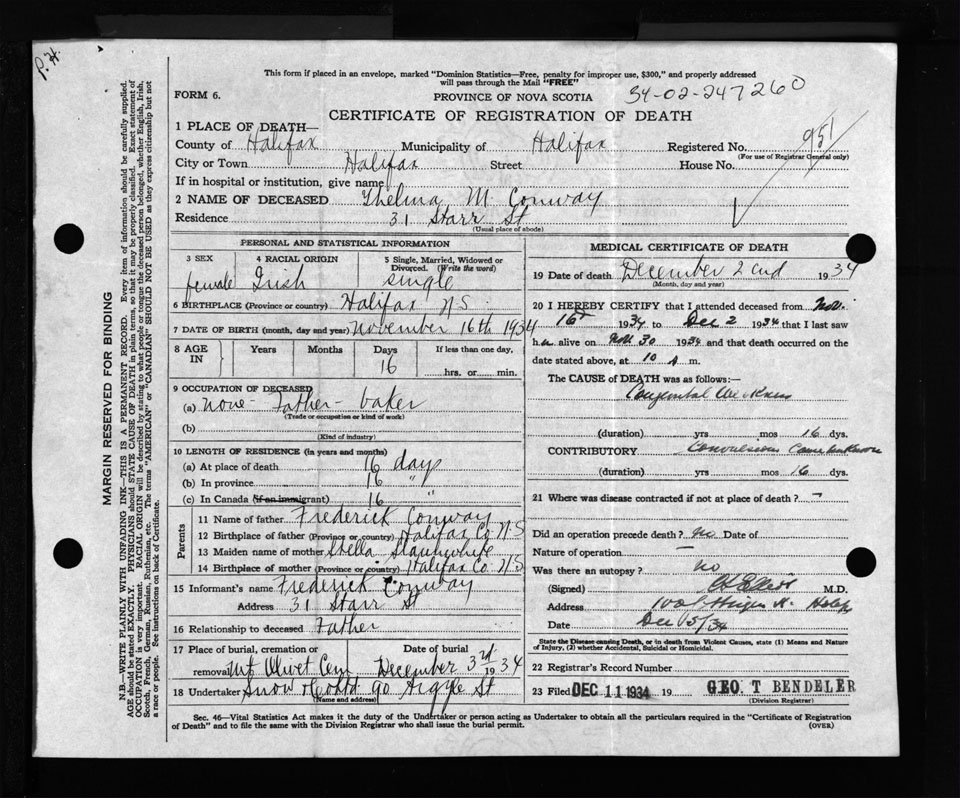 P.H.
This form if placed in an envelope, marked "Dominion Statistics—Free, penalty for improper use, $300," and properly addressed
will pass through the Mail "FREE"
FORM 6.
PROVINCE OF NOVA SCOTIA
34-02-247260
CERTIFICATE OF REGISTRATION OF DEATH
1 PLACE OF DEATH—
County of Halifax Municipality of Halifax Registered No. 951
(For use of Registrar General only)
City or Town Halifax Street House No.
If in hospital or institution, give name
2 NAME OF DECEASED Thelma M. Conway
Residence 31 Starr St
(Usual place of abode)
MARGIN RESERVED FOR BINDING
N.B.—WRITE PLAINLY WITH UNFADING INK—THIS IS A PERMANENT RECORD. Every item of information should be carefully supplied.
AGE should be stated EXACTLY. PHYSICIANS should STATE CAUSE OF DEATH in plain terms, so that it may be properly classified. Exact statement of
OCCUPATION is very important. RACIAL ORIGIN will be described by stating to what people or tongue the deceased person belonged, whether English, Irish,
Scotch, French, German, Russian, Ruthenian, etc. The terms "AMERICAN" or "CANADIAN" SHOULD NOT BE USED as they express citizenship but not
a race or people. See instructions on back of Certificate.
PERSONAL AND STATISTICAL INFORMATION
3 SEX
female
4 RACIAL ORIGIN
Irish
5 Single, Married, Widowed or
Divorced. (Write the word)
single
6 BIRTHPLACE (Province or country) Halifax N.S.
7 DATE OF BIRTH (month, day and year) November 16th 1934
8 AGE IN Years Months Days If less than one day,
16 hrs. or min.
9 OCCUPATION OF DECEASED
(a) none - Father - baker
(Trade or occupation or kind of work)
(b)
(Kind of industry)
10 LENGTH OF RESIDENCE (in years and months)
(a) At place of death 16 days
(b) In province 16 "
(c) In Canada (if an immigrant) 16 "
Parents
11 Name of father Frederick Conway
12 Birthplace of father (Province or country) Halifax Co. N.S
13 Maiden name of mother Stella Slaunwhite
14 Birthplace of mother (Province or country) Halifax Co. N.S
15 Informant's name Frederick Conway
Address 31 Starr St
16 Relationship to deceased Father
17 Place of burial, cremation or Date of burial
removal Mt Olivet Cem December 3rd 1934
18 Undertaker Snow & Co Ltd 90 Argyle St
(Name and address)
MEDICAL CERTIFICATE OF DEATH
19 Date of death December 2nd 1934
(Month, day and year)
20 I HEREBY CERTIFY that I attended deceased from Nov.
16 1934 to Dec 2 1934 that I last saw
h alive on Nov. 30 1934 and that death occurred on
date stated above, at 10 A m.
The CAUSE OF DEATH was as follows:—
Congenital Weakness
(duration) yrs mos 16 dys.
CONTRIBUTORY Convulsions Cause unknown
(duration) yrs mos 16 dys.
21 Where was disease contracted if not at place of death? -
Did an operation precede death? no Date of
Nature of operation —
Was there an autopsy? no
(Signed) M.D.
Address
Date Dec 5/34
State the Disease causing Death, or in death from Violent Causes, state (1) Means and Nature
of Injury, (2) whether Accidental, Suicidal or Homicidal.
22 Registrar's Record Number
23 Filed DEC 11 1934 19 GEO. T BENDELER
(Division Registrar)
Sec. 46—Vital Statistics Act makes it the duty of the Undertaker or person acting as Undertaker to obtain all the particulars required in the "Certificate of Registration
of Death" and to file the same with the Division Registrar who shall issue the burial permit.
(OVER)